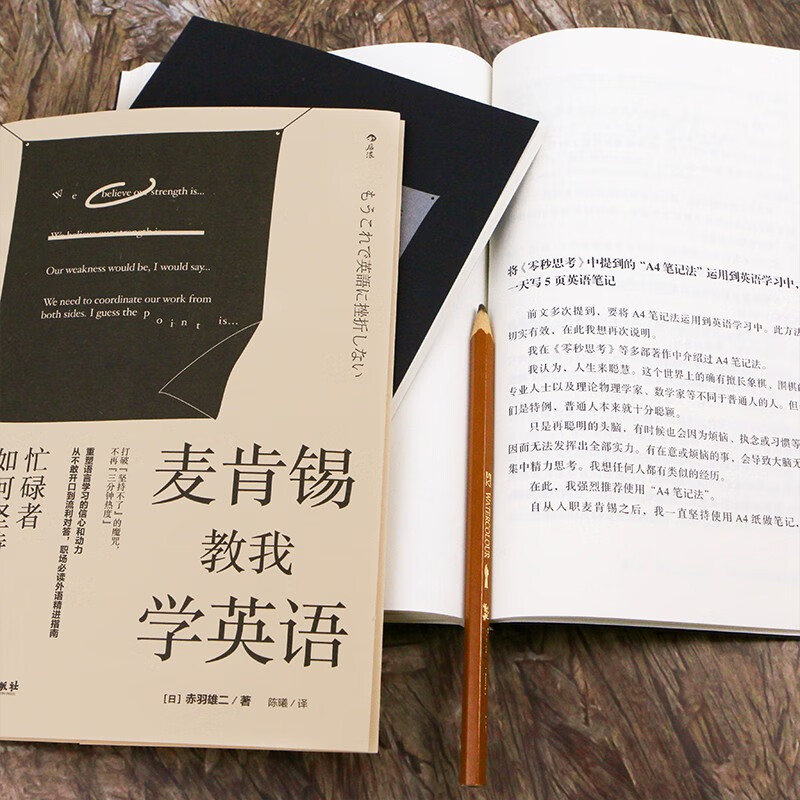 后浪
もうこれで英語に挫折しない
We believe our strength is...
We believe our strength is
Our weakness would be, I would say...
We need to coordinate our work from
both sides. I guess the point is...
麦肯锡
教我
学英语
打破“坚持不了”的魔咒，
不再“三分钟热度”
重塑语言学习的信心和动力
从不敢开口到流利对答，职场必读外语精进指南
忙碌者
如何坚持
［日］赤羽雄二／著 陈曦／译
版社
WATERCOLOUR
将《零秒思考》中提到的“A4笔记法”运用到英语学习中，
一天写5页英语笔记
前文多次提到，要将A4笔记法运用到英语学习中。此方法
切实有效，在此我想再次说明。
我在《零秒思考》等多部著作中介绍过A4笔记法。
我认为，人生来聪慧。这个世界上的确有擅长象棋、围棋的
专业人士以及理论物理学家、数学家等不同于普通人的人。但
们是特例，普通人本来就十分聪颖。
只是再聪明的头脑，有时候也会因为烦恼、执念或习惯等
因而无法发挥出全部实力。有在意或烦恼的事，会导致大脑无
集中精力思考。我想任何人都有类似的经历。
在此，我强烈推荐使用“A4笔记法”。
自从入职麦肯锡之后，我一直坚持使用A4纸做笔记，